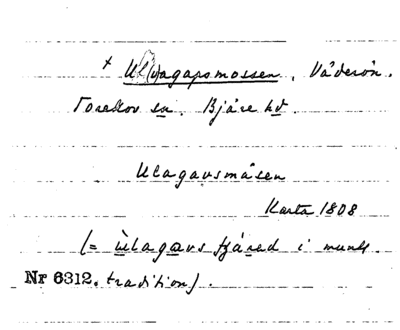 × Ulvagapsmossen, Väderön.
Torekov sn. Bjäre hd.
Ulagausmåsen
Karta 1808
(= ùlagavs fjáred i muntl.
Nr 6312. tradition).